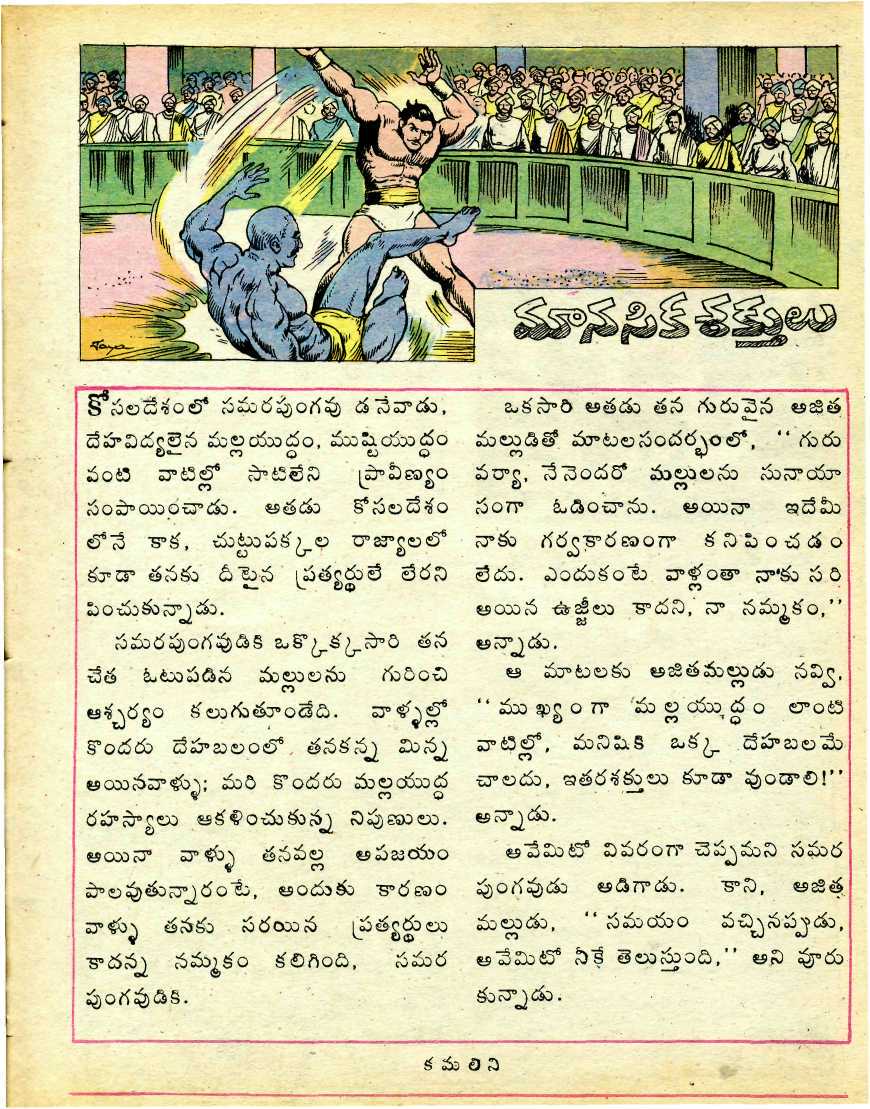 మానసిక శక్తులు
కోసలదేశంలో సమరపుంగవు డనేవాడు,
దేహవిద్యలైన మల్లయుద్ధం, ముష్టియుద్ధం
వంటి వాటిల్లో సాటిలేని ప్రావీణ్యం
సంపాయించాడు. అతడు కోసలదేశం
లోనే కాక, చుట్టుపక్కల రాజ్యాలలో
కూడా తనకు దీటైన ప్రత్యర్థులే లేరని
పించుకున్నాడు.
సమరపుంగవుడికి ఒక్కొక్కసారి తన
చేత ఓటుపడిన మల్లులను గురించి
ఆశ్చర్యం కలుగుతూండేది. వాళ్ళల్లో
కొందరు దేహబలంలో తనకన్న మిన్న
అయినవాళ్ళు; మరి కొందరు మల్లయుద్ధ
రహస్యాలు ఆకళించుకున్న నిపుణులు.
అయినా వాళ్ళు తనవల్ల అపజయం
పాలవుతున్నారంటే, అందుకు కారణం
వాళ్ళు తనకు సరయిన ప్రత్యర్థులు
కాదన్న నమ్మకం కలిగింది, సమర
పుంగవుడికి.
ఒకసారి అతడు తన గురువైన అజిత
మల్లుడితో మాటలసందర్భంలో, ‘‘ గురు
వర్యా, నేనెందరో మల్లులను సునాయా
సంగా ఓడించాను. అయినా ఇదేమీ
నాకు గర్వకారణంగా కనిపించడం
లేదు. ఎందుకంటే వాళ్లంతా నాకు సరి
అయిన ఉజ్జీలు కాదని, నా నమ్మకం,’’
అన్నాడు.
ఆ మాటలకు అజితమల్లుడు నవ్వి,
‘‘ ముఖ్యంగా మల్లయుద్ధం లాంటి
వాటిల్లో, మనిషికి ఒక్క దేహబలమే
చాలదు, ఇతరశక్తులు కూడా వుండాలి!’’
అన్నాడు.
అవేమిటో వివరంగా చెప్పమని సమర
పుంగవుడు అడిగాడు. కాని, అజిత
మల్లుడు, ‘‘ సమయం వచ్చినప్పుడు,
అవేమిటో నీకే తెలుస్తుంది,’’ అని వూరు
కున్నాడు.
కమలిని